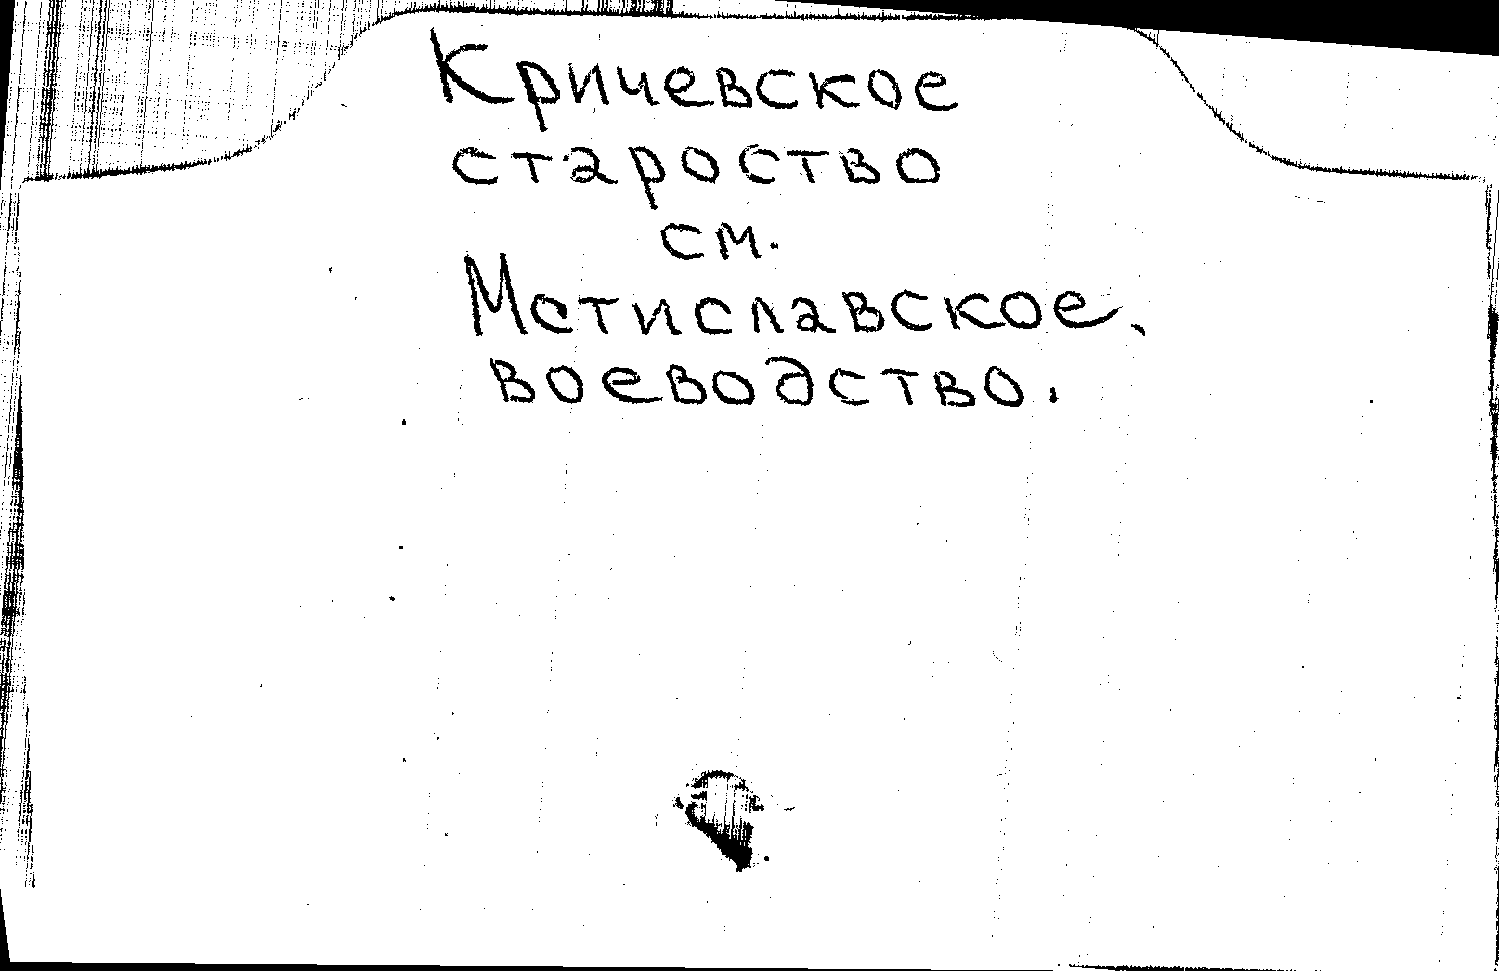 Кричевское
староство
см.
Мстиславское
воеводство.